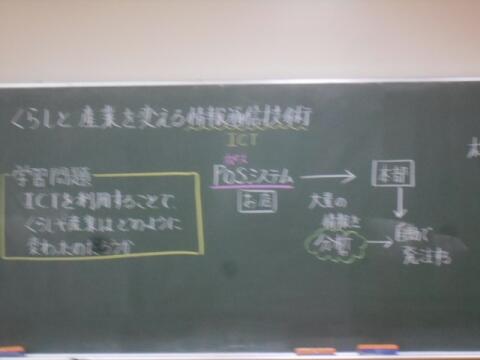 くらしと産業を変える情報通信技術
ICT
学習問題
ICTを利用することで、
くらしや産業はどのように
変わったのだろうか
ポス
POSシステム
お店
本部
大量の
情報を
分析
自動で
発注する